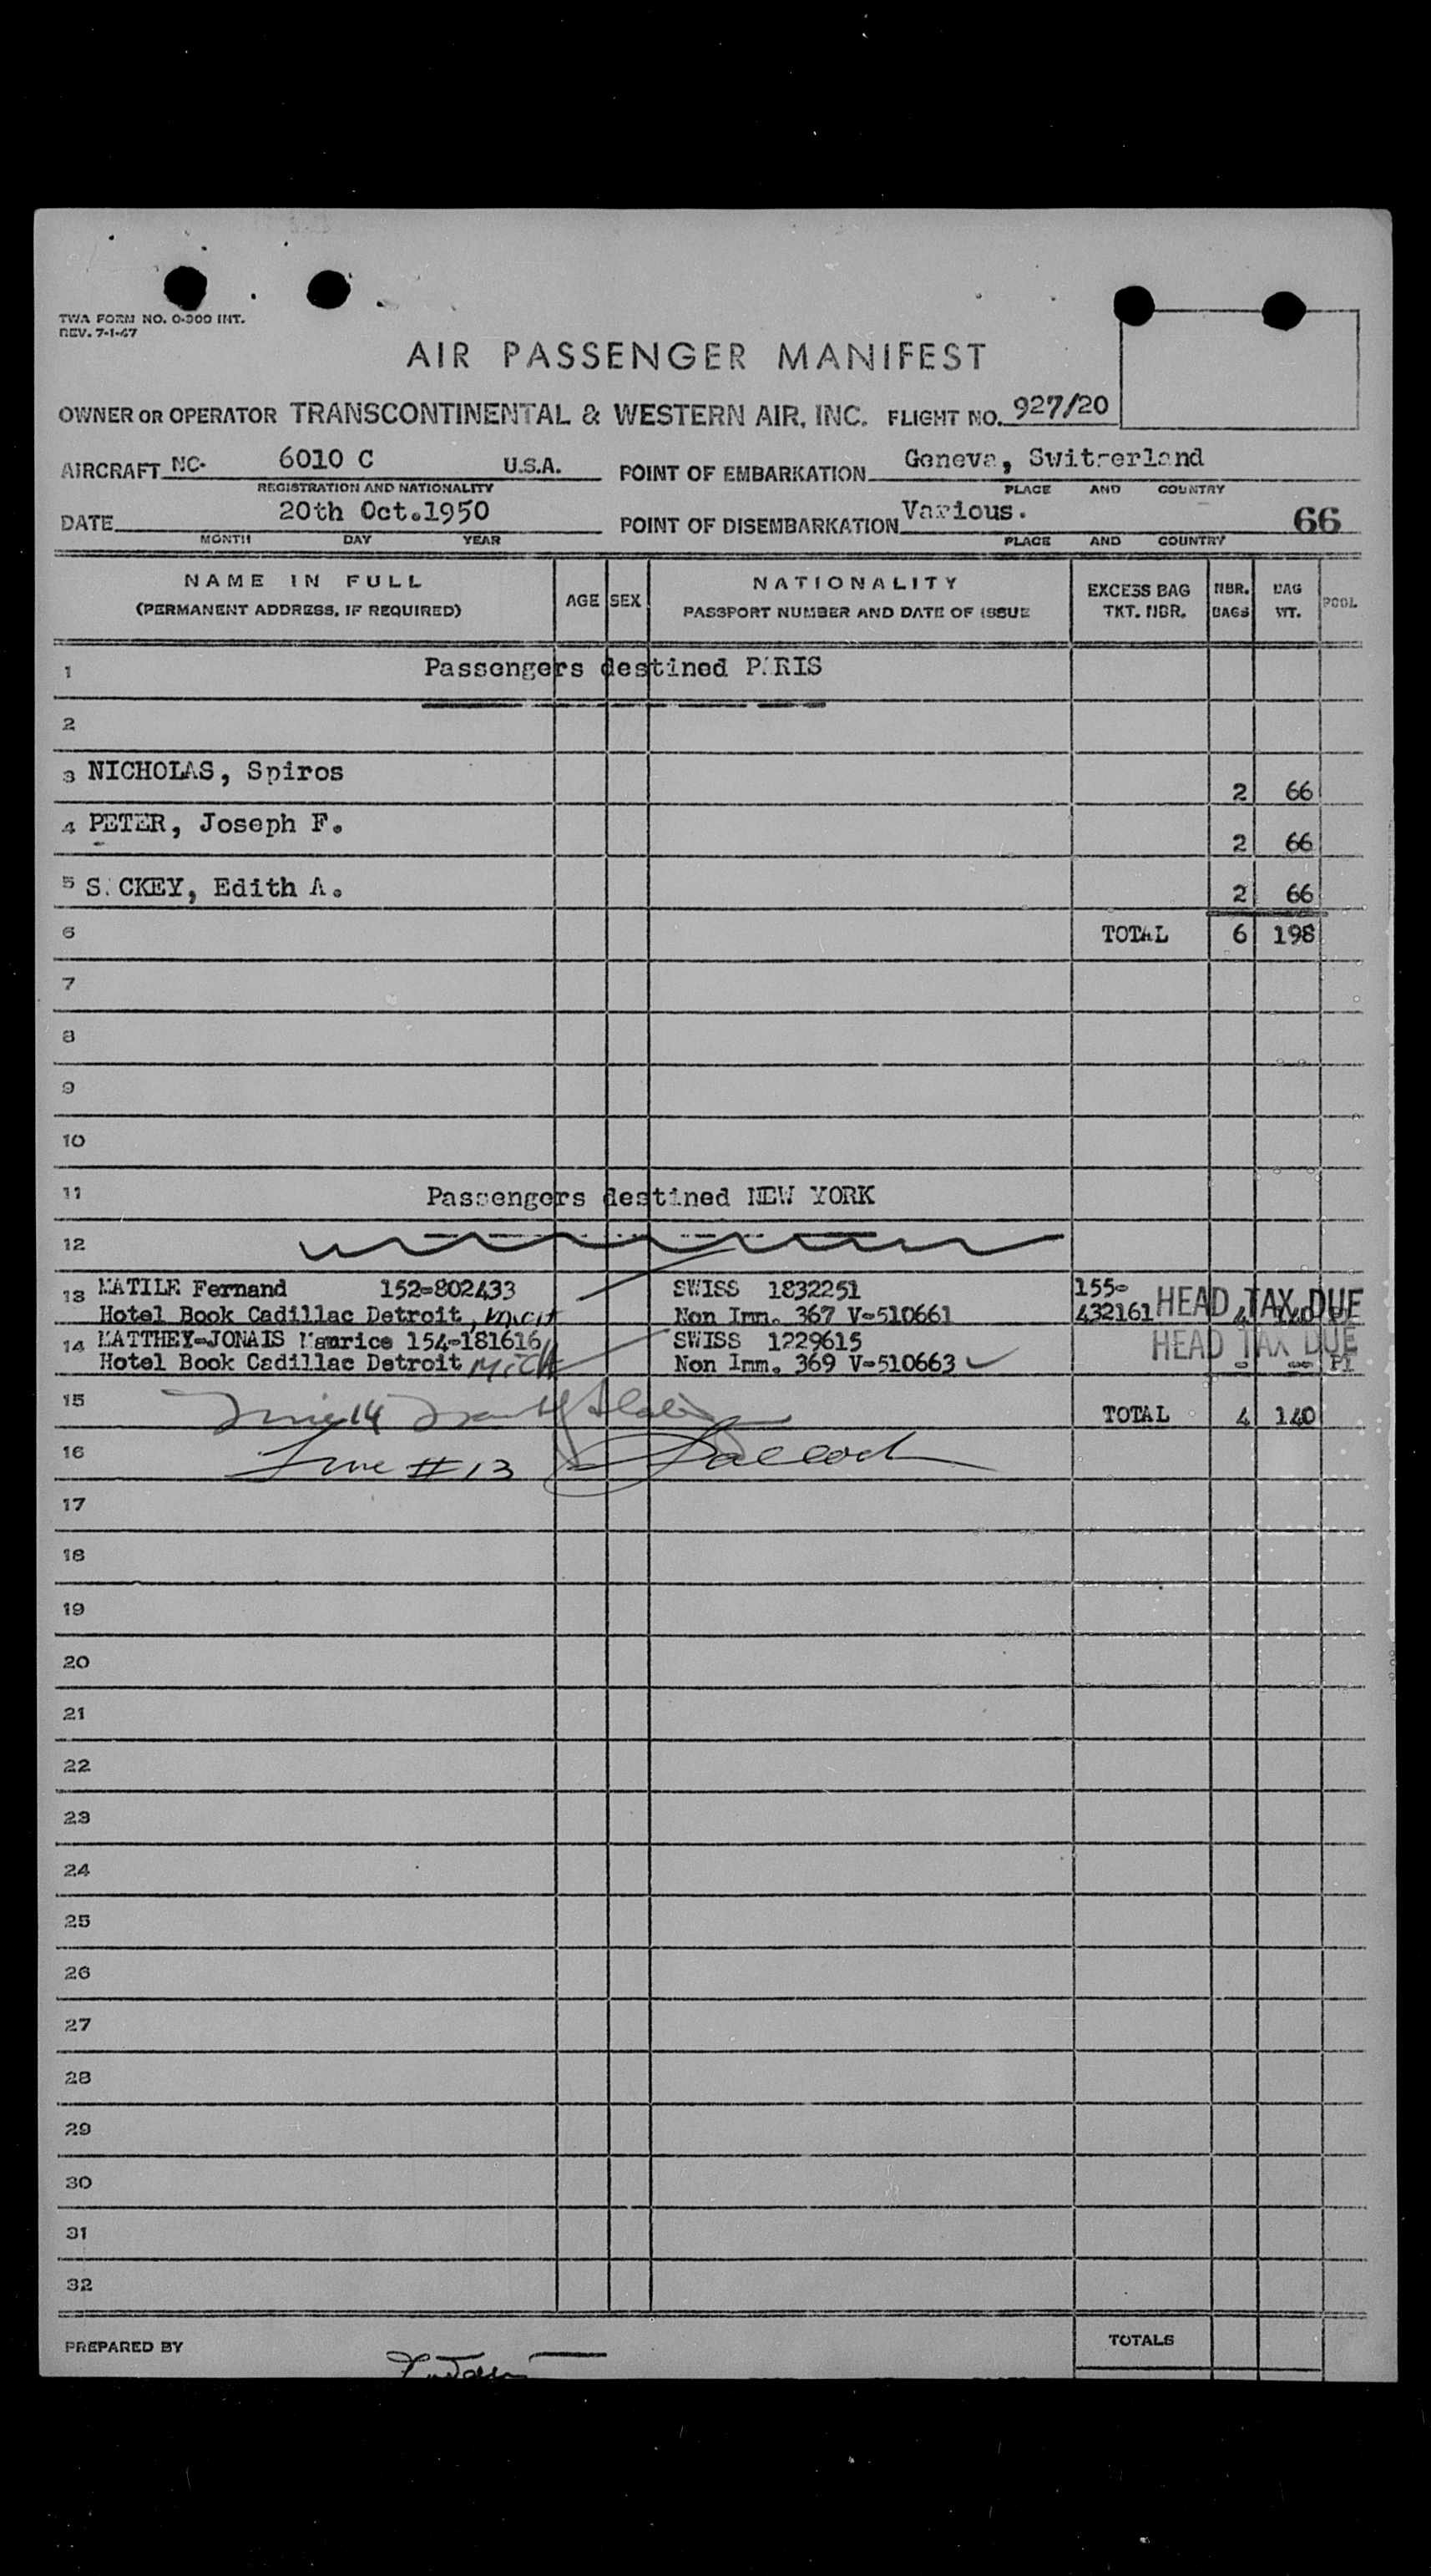 TWA FORM NO. O-300 INT.
REV. 7-1-47
AIR PASSENGER MANIFEST
OWNER OR OPERATOR TRANSCONTINENTAL & WESTERN AIR, INC. FLIGHT NO. 927/20
AIRCRAFT NC- 6010 C U.S.A. POINT OF EMBARKATION Geneva, Switzerland
REGISTRATION AND NATIONALITY PLACE AND COUNTRY
DATE 20th Oct.1950 POINT OF DISEMBARKATION Various. 66
MONTH DAY YEAR PLACE AND COUNTRY
NAME IN FULL AGE SEX NATIONALITY EXCESS BAG NBR. BAG POOL
(PERMANENT ADDRESS, IF REQUIRED) PASSPORT NUMBER AND DATE OF ISSUE TKT. NBR. BAGS WT.
1 Passengers destined PARIS
2
3 NICHOLAS, Spiros 2 66
4 PETER, Joseph F. 2 66
5 SACKEY, Edith A. 2 66
6 TOTAL 6 198
7
8
9
10
11 Passengers destined NEW YORK
12
13 MATILE Fernand 152-802433 SWISS 1832251 155-
Hotel Book Cadillac Detroit, Non Imm. 367 V-510661 432161 HEAD TAX DUE
14 MATTHEY-JONAIS Maurice 154-181616 SWISS 1229615 HEAD TAX DUE
Hotel Book Cadillac Detroit Mich Non Imm. 369 V-510663 PI
15 14 TOTAL 4 140
16 Line #13
17
18
19
20
21
22
23
24
25
26
27
28
29
30
31
32
PREPARED BY TOTALS